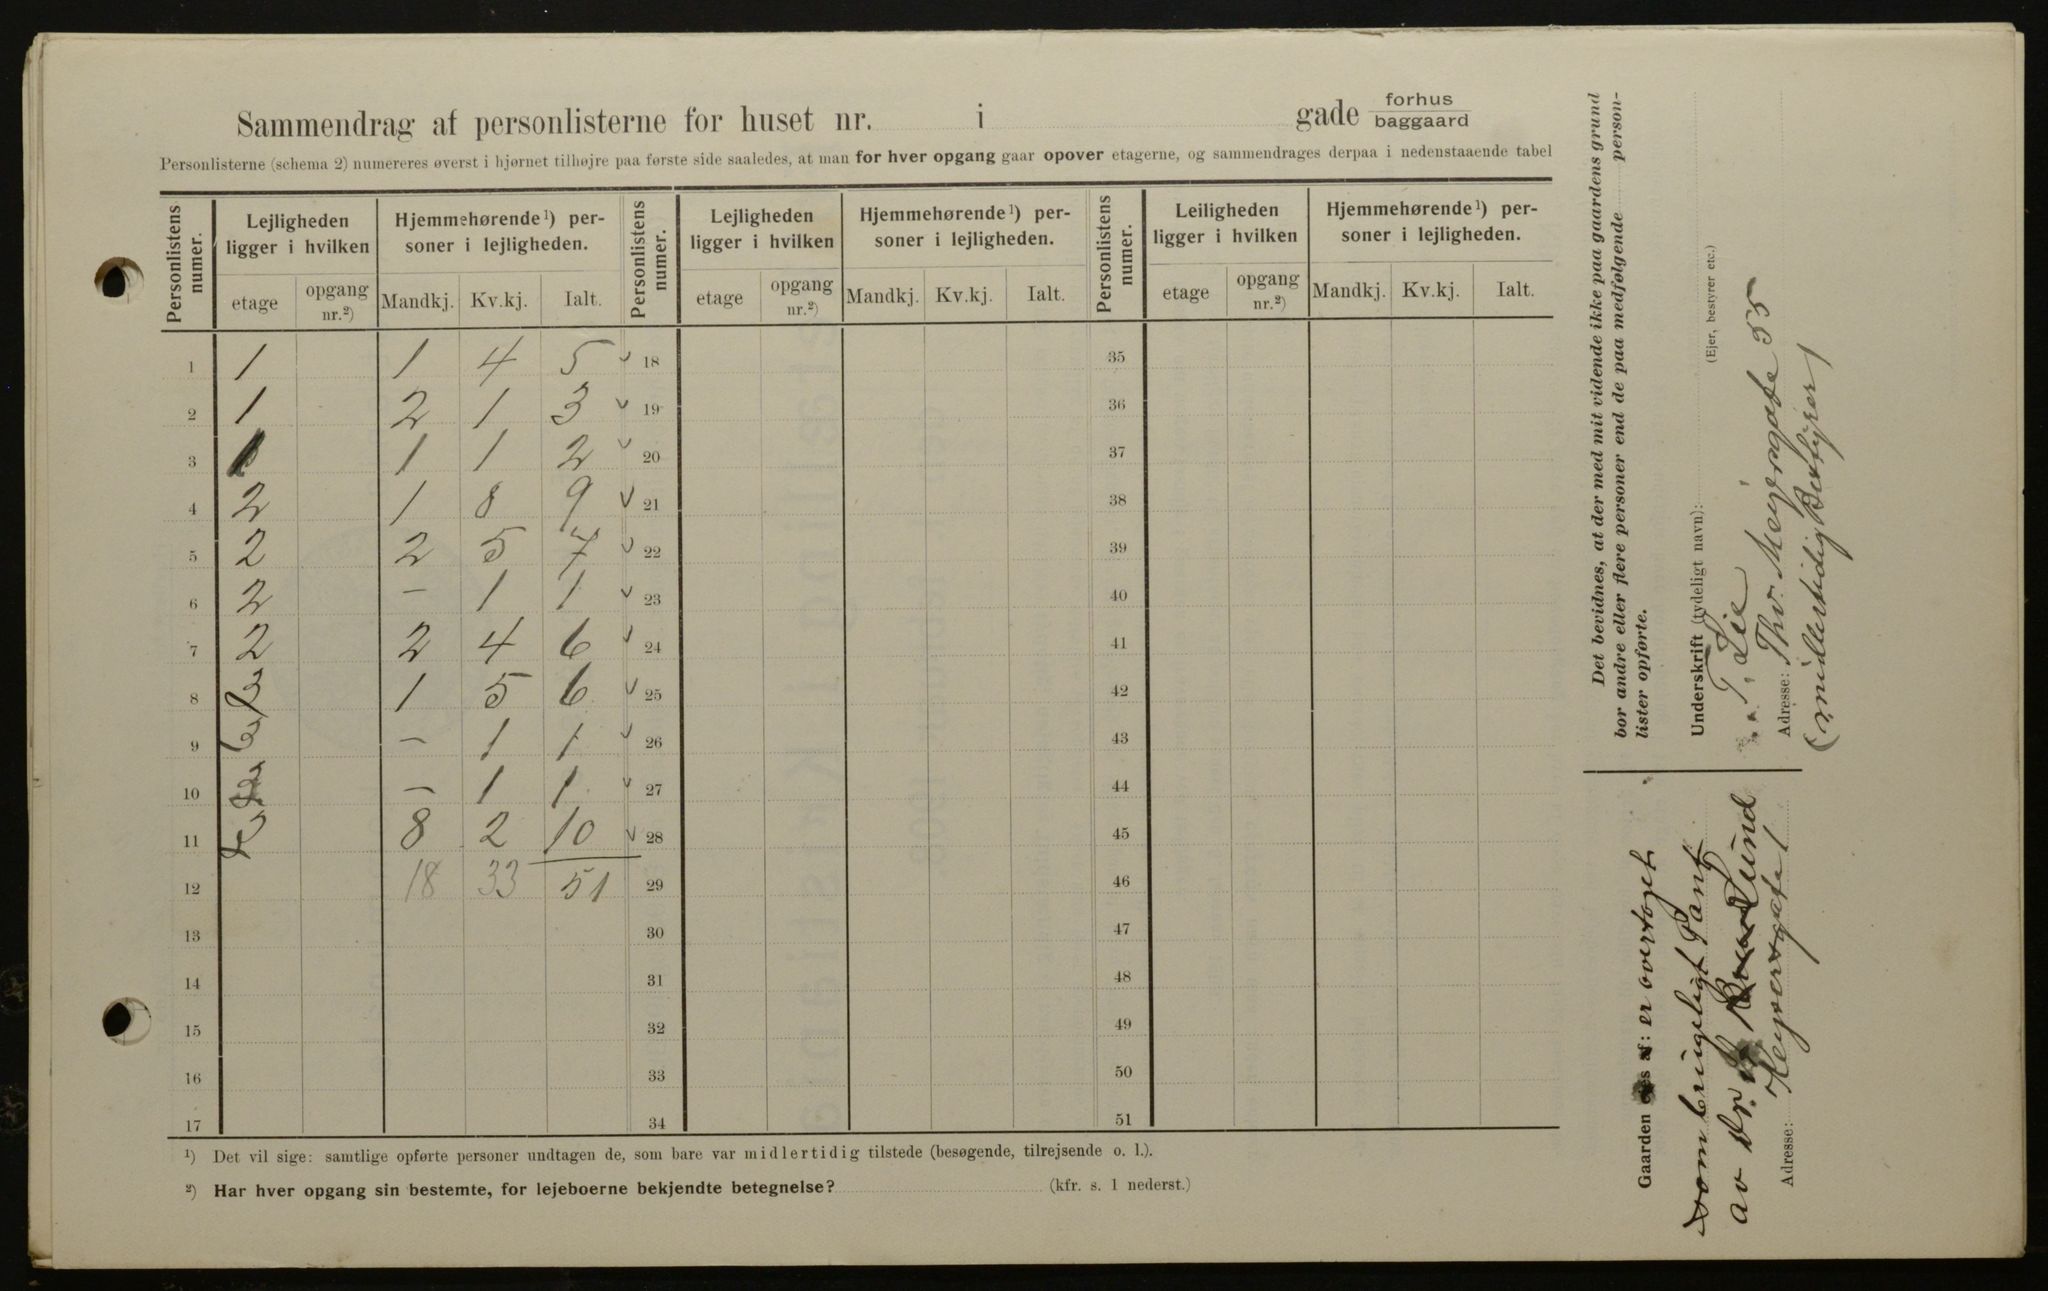 Sammendrag af personlisterne for huset nr. i gade forhus baggaard
Personlisterne (schema 2) numereres øverst i hjørnet tilhøjre paa første side saaledes, at man for hver opgang gaar opover etagerne, og sammendrages derpaa i nedenstaaende tabel
Personlistens numer.
Lejligheden ligger i hvilken
Hjemmehørende¹) personer i lejligheden.
Personlistens numer.
Lejligheden ligger i hvilken
Hjemmehørende¹) personer i lejligheden.
Personlistens numer.
Leiligheden ligger i hvilken
Hjemmehørende¹) personer i lejligheden.
etage opgang nr.²) Mandkj. Kv.kj. Ialt. etage opgang nr.²) Mandkj. Kv.kj. Ialt. etage opgang nr.²) Mandkj. Kv.kj. Ialt.
1 1 1 4 5 ✓ 18 35
2 1 2 1 3 ✓ 19 36
3 1 1 2 ✓ 20 37
4 2 1 8 9 ✓ 21 38
5 2 2 5 7 ✓ 22 39
6 2 – 1 1 ✓ 23 40
7 2 2 4 6 ✓ 24 41
8 3 1 5 6 ✓ 25 42
9 – 1 1 ✓ 26 43
10 – 1 1 ✓ 27 44
11 8 2 10 ✓ 28 45
12 18 33 51 29 46
13 30 47
14 31 48
15 32 49
16 33 50
17 34 51
¹) Det vil sige: samtlige opførte personer undtagen de, som bare var midlertidig tilstede (besøgende, tilrejsende o. l.).
²) Har hver opgang sin bestemte, for lejeboerne bekjendte betegnelse? (kfr. s. 1 nederst.)
Det bevidnes, at der med mit vidende ikke paa gaardens grund
bor andre eller flere personer end de paa medfølgende personlister opførte.
Underskrift (tydeligt navn):
(Ejer, bestyrer etc.)
T. Lie
Adresse: Thv. Meyersgate 55
(midlertidig Bestyrer)
Gaarden af: er overtaget
som brugeligt Pant
av Dr. Lund
Adresse: